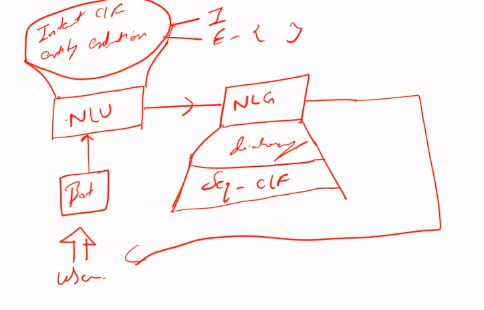 Intent Clf
entity
I
E - { }
NLU
NLG
dictionary
Seq - CLF
Bot
User